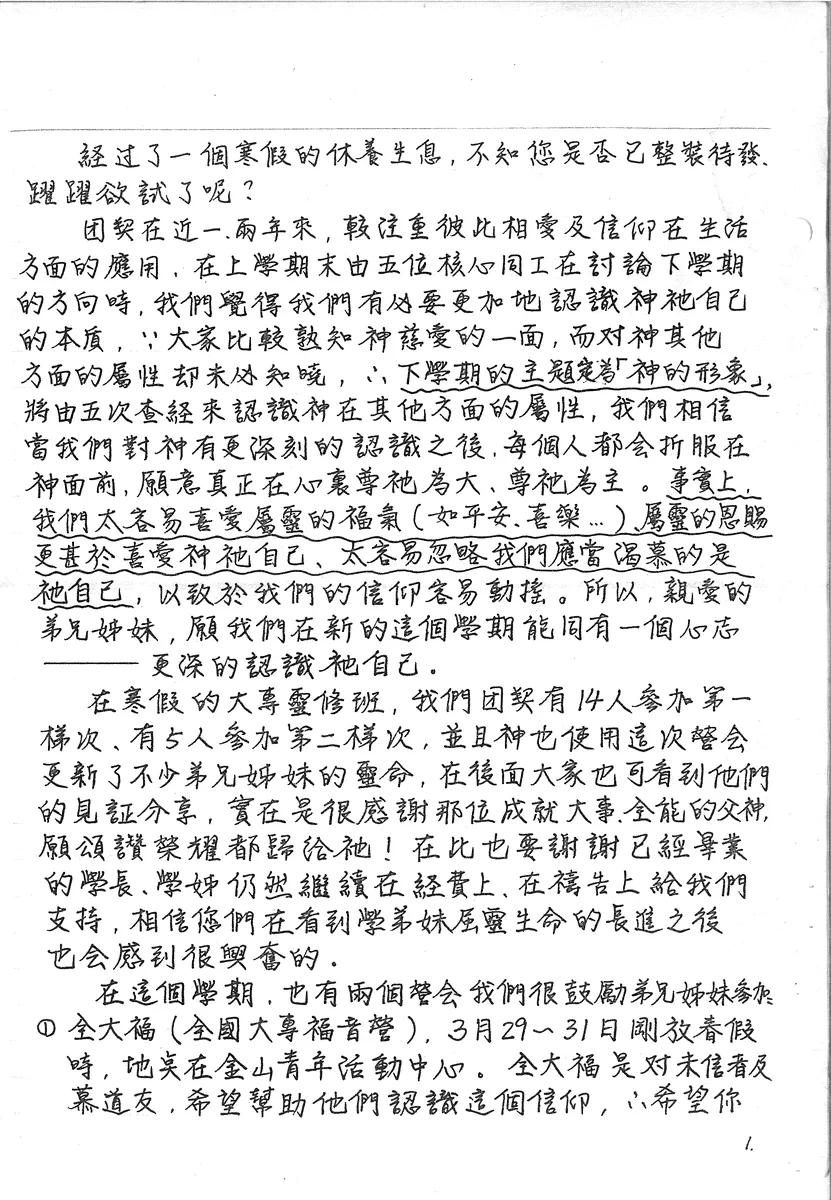 経过了一個寒假的休養生息,不知您是否已整裝待發、
躍躍欲試了呢?
团契在近一、兩年來,較注重彼此相愛及信仰在生活
方面的應用、在上學期末由五位核心同工在討論下學期
的方向時,我們覺得我們有必要更加地認識神祂自己
的本质,∵大家比較熟知神慈愛的一面,而対神其他
方面的屬性却未必知曉,∴下學期的主題定為「神的形象」,
將由五次查經來認識神在其他方面的屬性,我們相信
當我們對神有更深刻的認識之後,每個人都会折服在
神面前,願意真正在心裏尊祂為大、尊祂為主。事實上,
我們太容易喜愛屬靈的福氣(如平安、喜樂…)、屬靈的恩賜
更甚於喜愛神祂自己、太容易忽略我們應當渴慕的是
祂自己,以致於我們的信仰容易動搖。所以,親愛的
弟兄姊妹,願我們在新的這個學期能同有一個心志
——更深的認識祂自己.
在寒假的大專靈修班,我們团契有14人參加第一
梯次、有5人參加第二梯次,並且神也使用這次營会
更新了不少弟兄姊妹的靈命,在後面大家也可看到他們
的見証分享,實在是很感謝那位成就大事、全能的父神,
願頌讚榮耀都歸给祂!在此也要謝謝已經畢業
的學長、學姊仍然繼續在経費上、在禱告上給我們
支持,相信您們在看到學弟妹屬靈生命的長進之後
也会感到很興奮的.
在這個學期,也有兩個營会我們很鼓勵弟兄姊妹參加:
① 全大福(全國大專福音營),3月29~31日剛放春假
時,地点在金山青年活動中心。全大福是対未信者及
慕道友,希望幫助他們認識這個信仰,∴希望你
1.